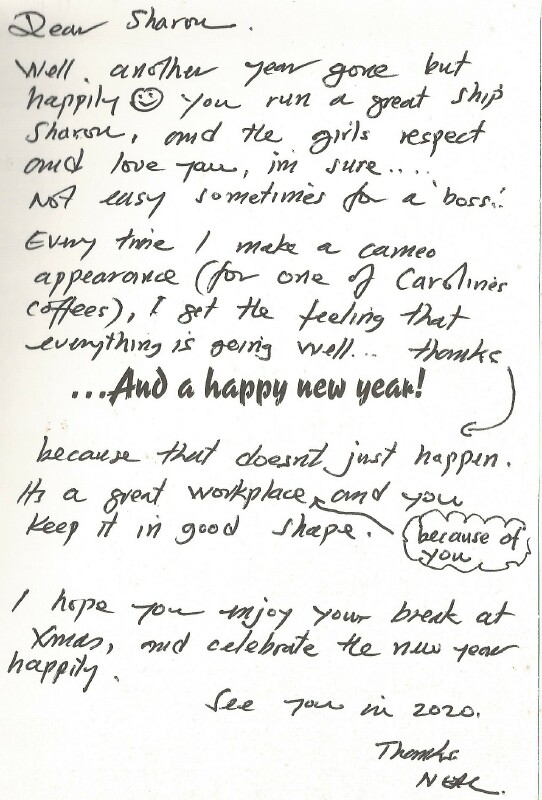 Dear Sharon.
Well, another year gone but
happily ☺ you run a great ship
Sharon, and the girls respect
and love you, i'm sure.....
Not easy sometimes for a 'boss'.
Every time I make a cameo
appearance (for one of Caroline's
coffees), I get the feeling that
everything is going well... thanks
...And a happy new year!
because that doesn't just happen.
It's a great workplace, and you
keep it in good shape.
because of
you
I hope you enjoy your break at
Xmas, and celebrate the new year
happily.
See you in 2020.
Thanks